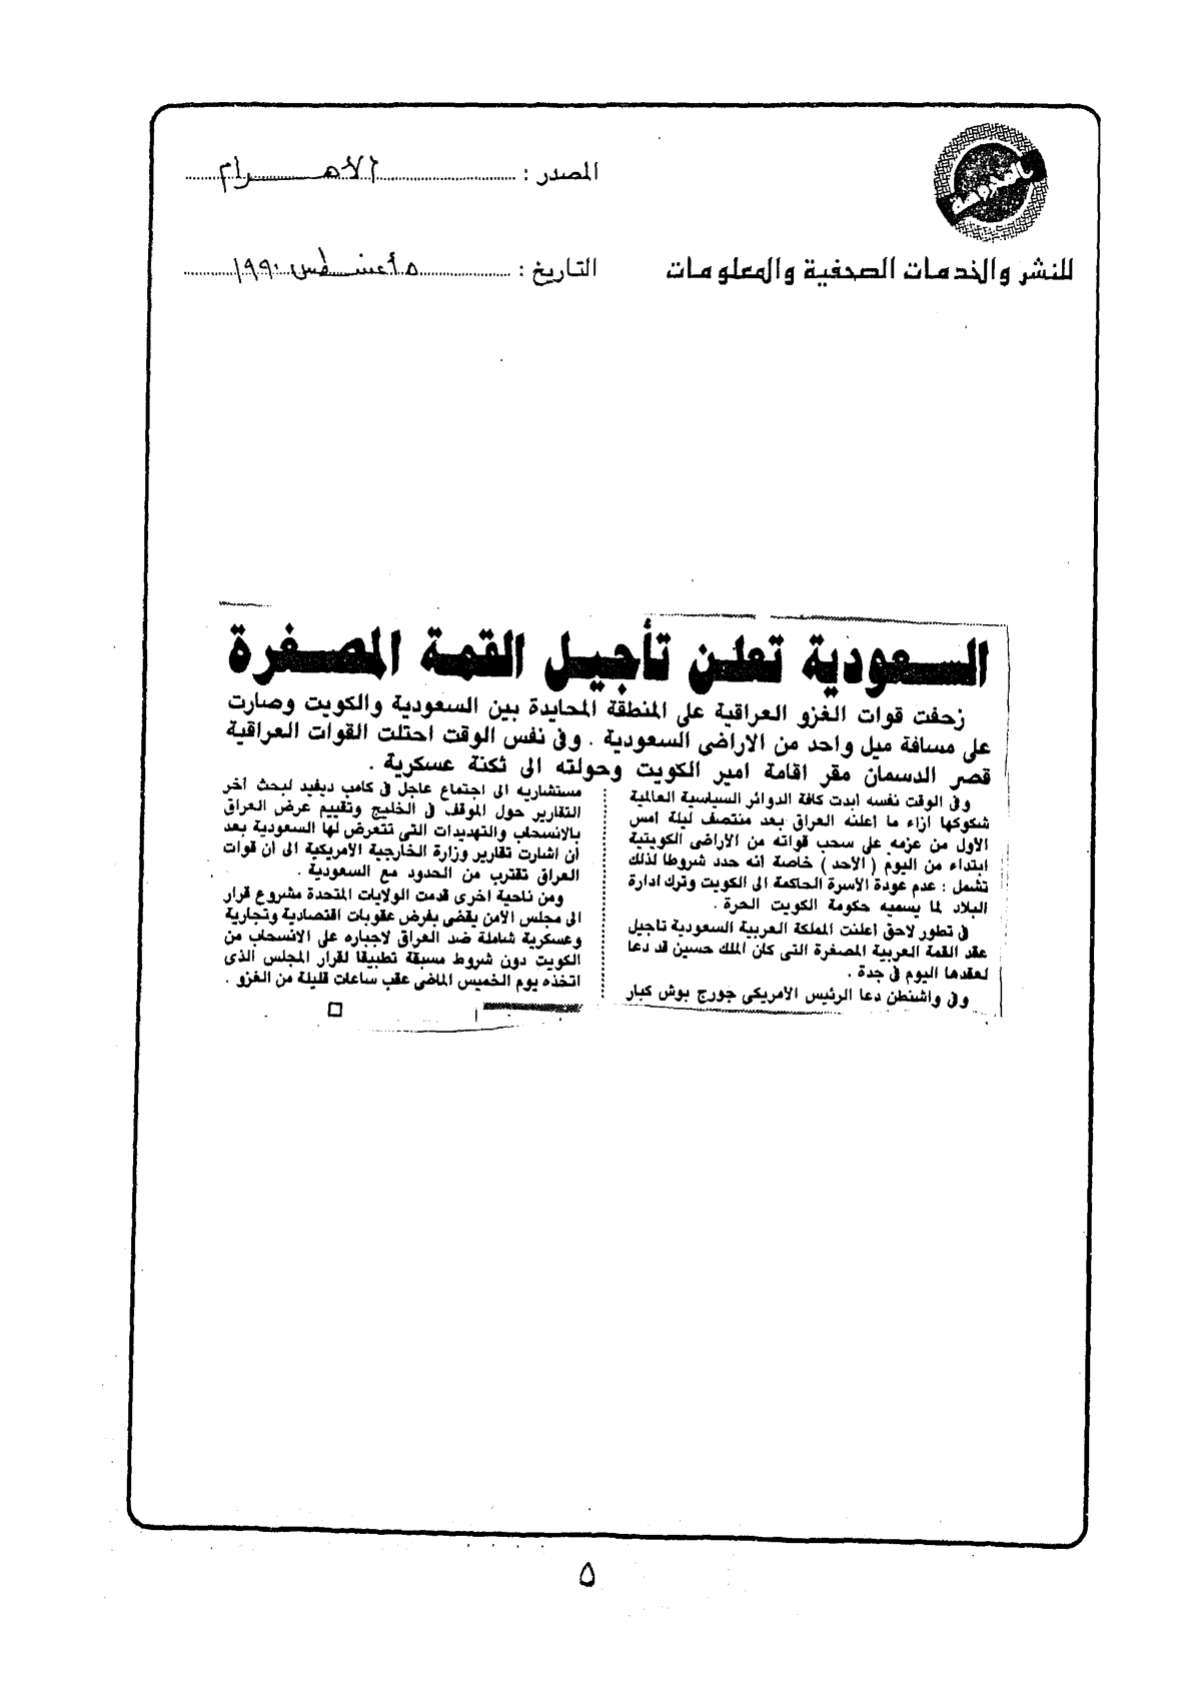 المحروسة
للنشر والخدمات الصحفية والمعلومات
المصدر : الأهرام
التاريخ : ٥ أغسطس ١٩٩٠
السعودية تعلن تأجيل القمة المصغرة
زحفت قوات الغزو العراقية على المنطقة المحايدة بين السعودية والكويت وصارت
على مسافة ميل واحد من الاراضى السعودية . وفى نفس الوقت احتلت القوات العراقية
قصر الدسمان مقر اقامة امير الكويت وحولته الى ثكنة عسكرية .
وفى الوقت نفسه ابدت كافة الدوائر السياسية العالمية
شكوكها ازاء ما اعلنه العراق بعد منتصف ليلة امس
الاول من عزمه على سحب قواته من الاراضى الكويتية
ابتداء من اليوم ( الاحد ) خاصة انه حدد شروطا لذلك
تشمل : عدم عودة الاسرة الحاكمة الى الكويت وترك ادارة
البلاد لما يسميه حكومة الكويت الحرة .
فى تطور لاحق أعلنت المملكة العربية السعودية تاجيل
عقد القمة العربية المصغرة التى كان الملك حسين قد دعا
لعقدها اليوم فى جدة .
وفى واشنطن دعا الرئيس الامريكى جورج بوش كبار
مستشاريه الى اجتماع عاجل فى كامب ديفيد لبحث آخر
التقارير حول الموقف فى الخليج وتقييم عرض العراق
بالانسحاب والتهديدات التى تتعرض لها السعودية بعد
أن اشارت تقارير وزارة الخارجية الامريكية الى ان قوات
العراق تقترب من الحدود مع السعودية .
ومن ناحية اخرى قدمت الولايات المتحدة مشروع قرار
الى مجلس الامن يقضى بفرض عقوبات اقتصادية وتجارية
وعسكرية شاملة ضد العراق لاجباره على الانسحاب من
الكويت دون شروط مسبقة تطبيقا لقرار المجلس الذى
اتخذه يوم الخميس الماضى عقب ساعات قليلة من الغزو .
٥